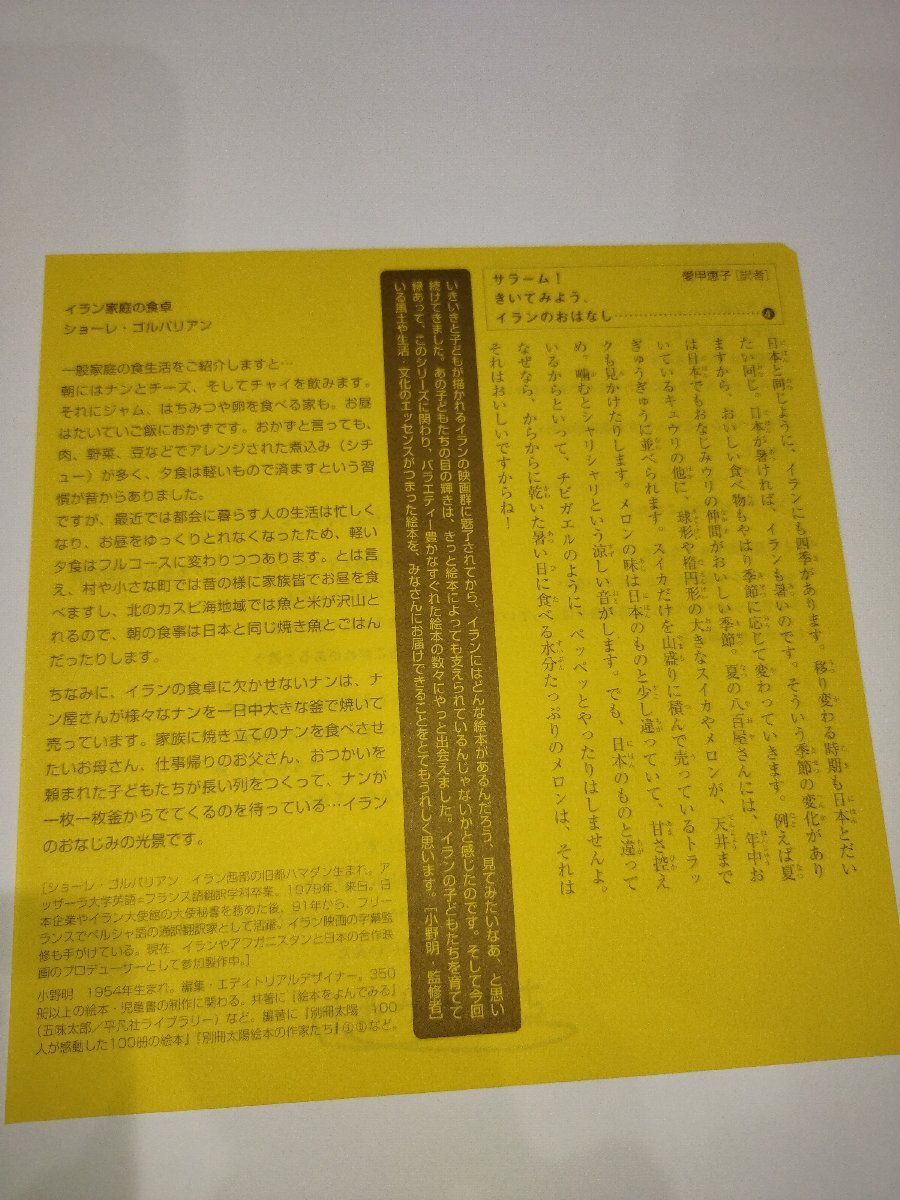 サラーム!
きいてみよう、
イランのおはなし……………………④
愛甲恵子[訳者]
日本と同じように、イランにも四季があります。移り変わる時期も日本とだい
たい同じ。日本が暑ければ、イランも暑いのです。そういう季節の変化があり
ますから、おいしい食べ物もやはり季節に応じて変わっていきます。例えば夏
は日本でもおなじみウリの仲間がおいしい季節。夏の八百屋さんには、年中お
いているキュウリの他に、球形や楕円形の大きなスイカやメロンが、天井まで
ぎゅうぎゅうに並べられます。スイカだけを山盛りに積んで売っているトラッ
クも見かけたりします。メロンの味は日本のものと少し違っていて、甘さ控え
め。噛むとシャリシャリという涼しい音がします。でも、日本のものと違って
いるからといって、チビガエルのように、ペッペッとやったりはしませんよ。
なぜなら、からからに乾いた暑い日に食べる水分たっぷりのメロンは、それは
それはおいしいですからね!
いきいきと子どもが描かれるイランの映画群に魅了されてから、イランにはどんな絵本があるんだろう、見てみたいなあ、と思い
続けてきました。あの子どもたちの目の輝きは、きっと絵本によっても支えられているんじゃないかと感じたのです。そして今回
縁あって、このシリーズに関わり、バラエティー豊かなすぐれた絵本の数々にやっと出会えました。イランの子どもたちを育てて
いる風土や生活・文化のエッセンスがつまった絵本を、みなさんにお届けできることをとてもうれしく思います。[小野明・監修者]
イラン家庭の食卓
ショーレ・ゴルパリアン
一般家庭の食生活をご紹介しますと…
朝にはナンとチーズ、そしてチャイを飲みます。
それにジャム、はちみつや卵を食べる家も。お昼
はたいていご飯におかずです。おかずと言っても、
肉、野菜、豆などでアレンジされた煮込み(シチ
ュー)が多く、夕食は軽いもので済ますという習
慣が昔からありました。
ですが、最近では都会に暮らす人の生活は忙しく
なり、お昼をゆっくりとれなくなったため、軽い
夕食はフルコースに変わりつつあります。とは言
え、村や小さな町では昔の様に家族皆でお昼を食
べますし、北のカスピ海地域では魚と米が沢山と
れるので、朝の食事は日本と同じ焼き魚とごはん
だったりします。
ちなみに、イランの食卓に欠かせないナンは、ナ
ン屋さんが様々なナンを一日中大きな釜で焼いて
売っています。家族に焼き立てのナンを食べさせ
たいお母さん、仕事帰りのお父さん、おつかいを
頼まれた子どもたちが長い列をつくって、ナンが
一枚一枚釜からでてくるのを待っている…イラン
のおなじみの光景です。
[ショーレ・ゴルパリアン イラン西部の旧都ハマダン生まれ。ア
ッザーラ大学英語=フランス語翻訳学科卒業。1979年、来日。日
本企業やイラン大使館の大使秘書を務めた後、91年から、フリー
ランスでペルシャ語の通訳翻訳家として活躍。イラン映画の字幕監
修も手がけている。現在、イランやアフガニスタンと日本の合作映
画のプロデューサーとして参加製作中。]
小野明 1954年生まれ。編集・エディトリアルデザイナー。350
冊以上の絵本・児童書の制作に関わる。共著に『絵本をよんでみる』
(五味太郎/平凡社ライブラリー)など。編著に『別冊太陽 100
人が感動した100冊の絵本』『別冊太陽絵本の作家たち』①⑪など。